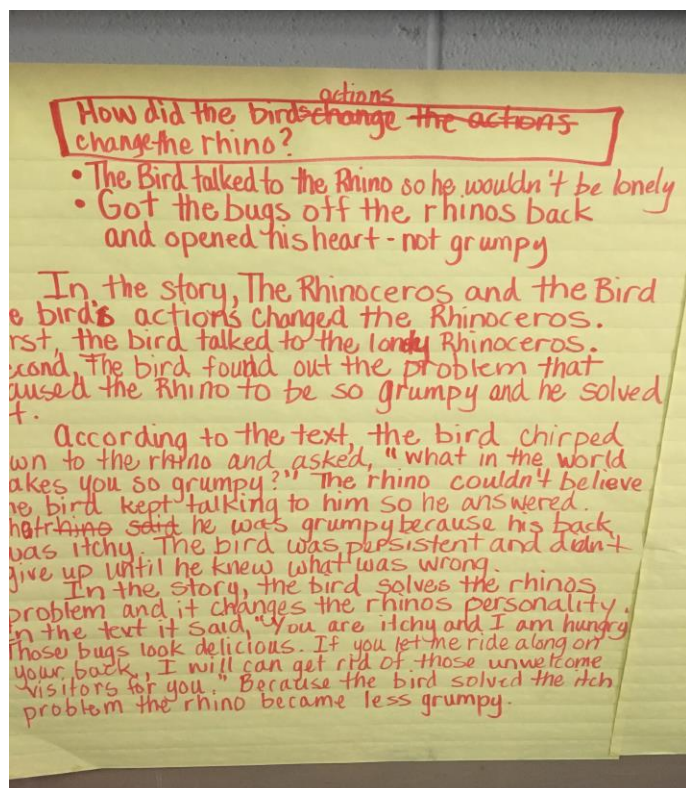 actions
How did the birds change the actions
change the rhino?
• The Bird talked to the Rhino so he wouldn't be lonely
• Got the bugs off the rhinos back
and opened his heart - not grumpy
In the story, The Rhinoceros and the Bird
e bird's actions changed the Rhinoceros.
rst, the bird talked to the lonely Rhinoceros.
cond, The bird found out the problem that
aused the Rhino to be so grumpy and he solved
t.
According to the text, the bird chirped
wn to the rhino and asked, "what in the world
akes you so grumpy?" The rhino couldn't believe
he bird kept talking to him so he answered.
hat rhino said he was grumpy because his back
was itchy. The bird was persistent and didn't
give up until he knew what was wrong.
In the story, the bird solves the rhinos
problem and it changes the rhinos personality.
In the text it said, "You are itchy and I am hungry
Those bugs look delicious. If you let me ride along on
your back, I will can get rid of those unwelcome
visitors for you." Because the bird solved the itch
problem the rhino became less grumpy.